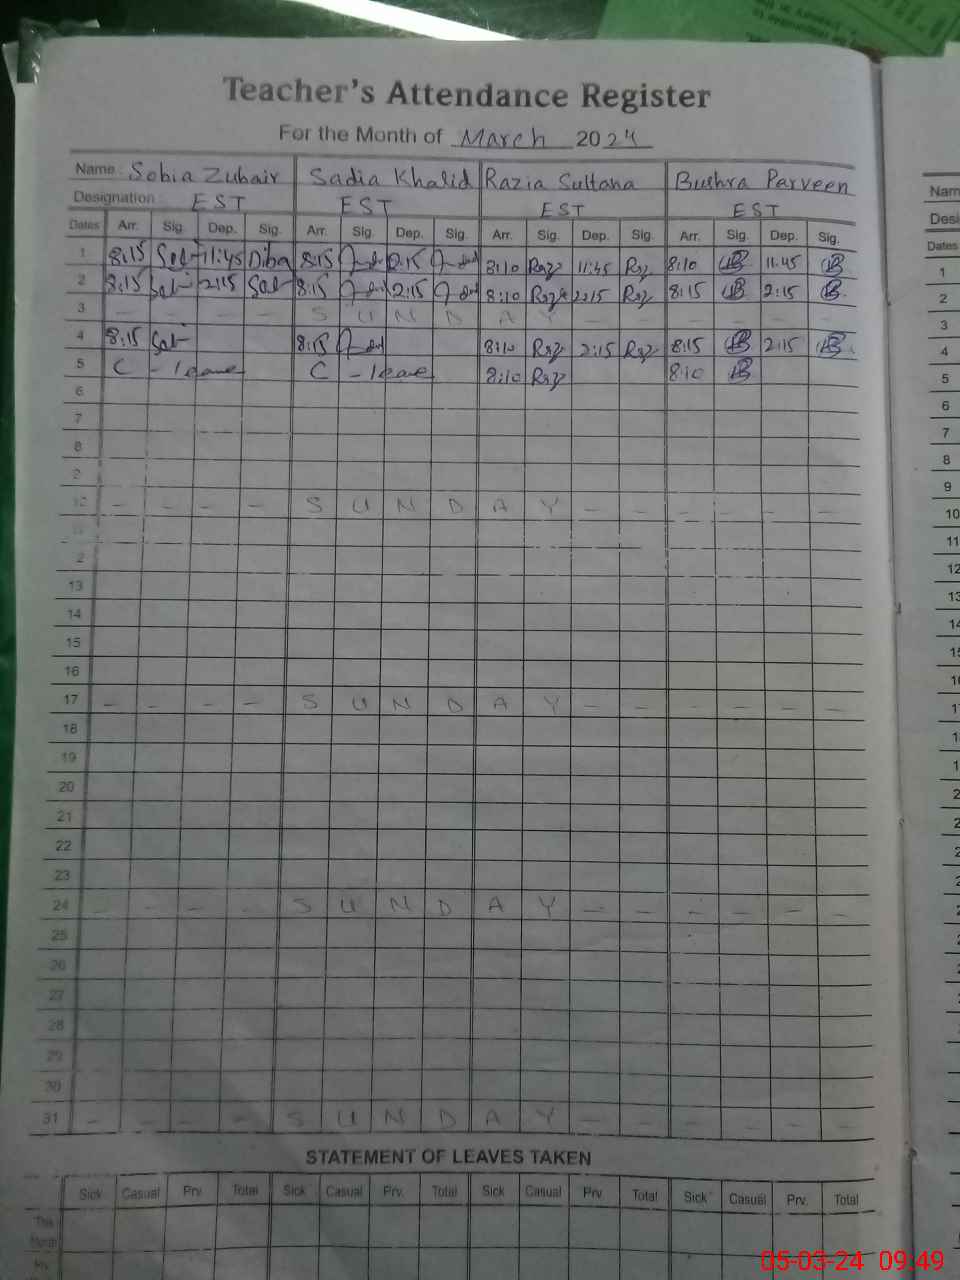 Teacher's Attendance Register
For the Month of March 2024
Name : Sobia Zubair Sadia Khalid Razia Sultana Bushra Parveen
Designation : EST EST EST EST
Dates Arr. Sig. Dep. Sig. Arr. Sig. Dep. Sig. Arr. Sig. Dep. Sig. Arr. Sig. Dep. Sig.
1 8:15 11:45 8:15 8:10 Raz 11:45 Raz 8:10 11:45
2 8:15 2:15 8:15 2:15 8:10 Raz 2:15 Raz 8:15 2:15
3 - - - - S U N D A Y - - - - - -
4 8:15 8:15 8:10 Raz 2:15 Raz 8:15 2:15
5 C - leave C - leave 8:10 Raz 8:10
6
7
8
10 - - - - S U N D A Y - - - - - -
13
14
15
16
17 - - - - S U N D A Y - - - - - -
18
19
20
21
22
23
24 - - - - S U N D A Y - - - - - -
25
26
27
28
29
30
31 - - - - S U N D A Y - - - - - -
STATEMENT OF LEAVES TAKEN
Sick Casual Prv. Total Sick Casual Prv. Total Sick Casual Prv. Total Sick Casual Prv. Total
This
Month
Dates
1
2
3
4
5
6
7
8
9
10
11
12
13
14
05-03-24 09:49